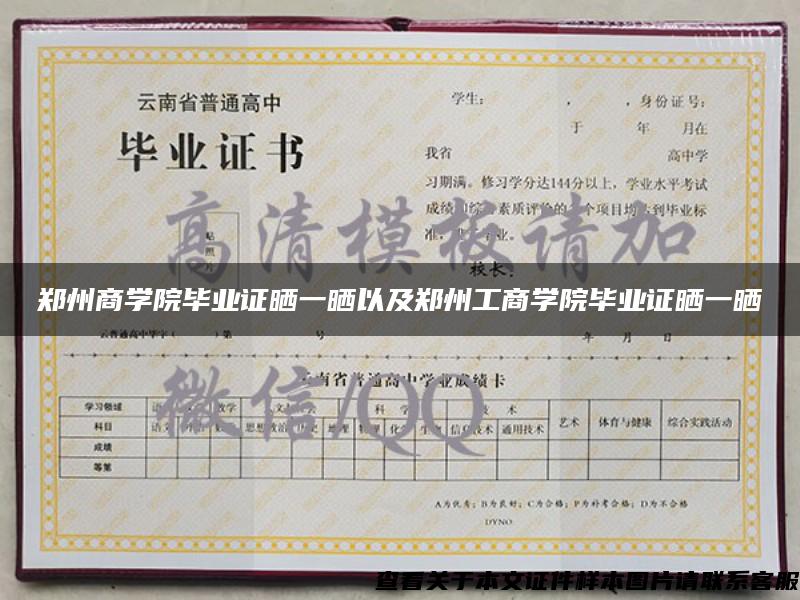 云南省普通高中
毕业证书
学生： ， ，身份证号：
于 年 月在
我省 高中学
习期满。修习学分达144分以上，学业水平考试
成绩和综 素质评价的 个项目均达到毕业标
准， 业。
贴
照
片
校长：
高清模板请加
郑州商学院毕业证晒一晒以及郑州工商学院毕业证晒一晒
云普通高中毕字（ ）第 号
年 月 日
云南省普通高中学业成绩卡
微信/QQ
学习领域 数学 科 学 技 术 艺术 体育与健康 综合实践活动
科目 语文 思想政治 历史 地理 物理 化学 生物 信息技术 通用技术
成绩
等第
A为优秀；B为良好；C为合格；P为补考合格；D为不合格
DYNO:
查看关于本文证件样本图片请联系客服